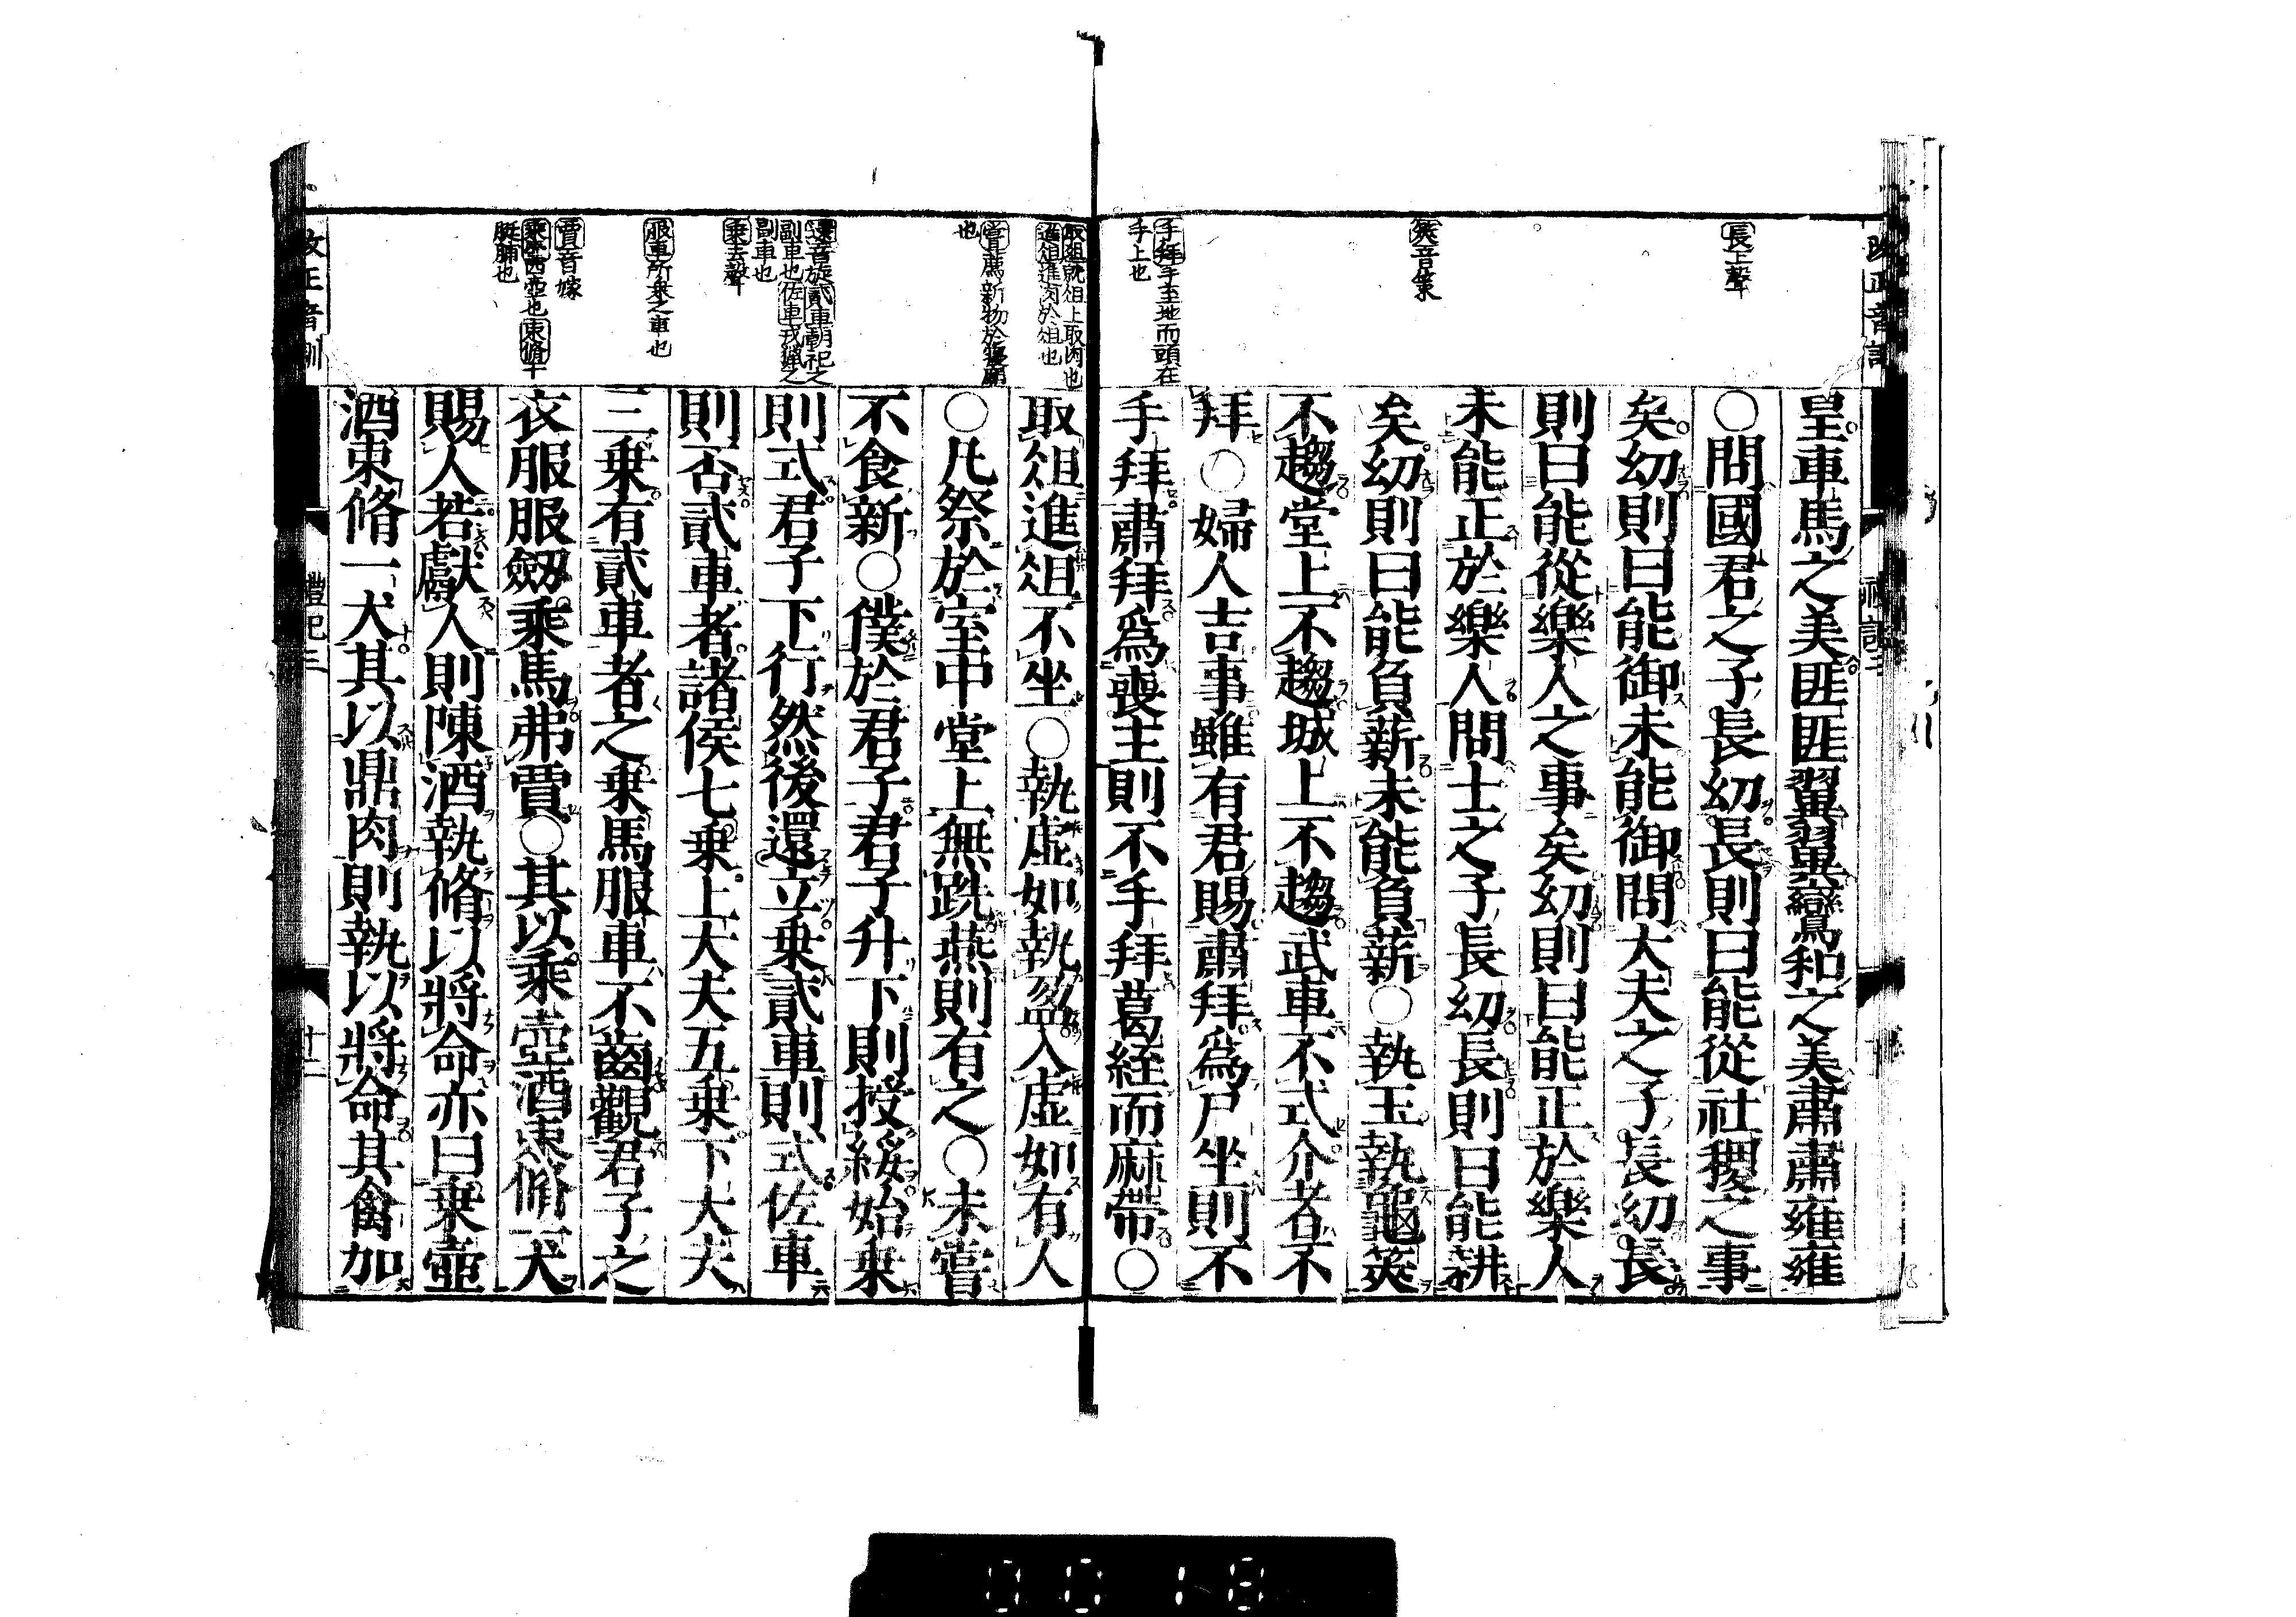 長上聲
筴音策
手拜手至地而頭在
手上也
皇車馬之美匪匪翼翼鸞和之美肅肅雍雍
○問國君之子長幼長則曰能從社稷之事
矣幼則曰能御未能御問大夫之子長幼長
則曰能從樂人之事矣幼則曰能正於樂人
未能正於樂人問士之子長幼長則曰能耕
矣幼則曰能負薪未能負薪○執玉執龜筴
不趨堂上不趨城上不趨武車不式介者不
拜○婦人吉事雖有君賜肅拜爲尸坐則不
手拜肅拜爲喪主則不手拜葛絰而麻帶○
取俎就俎上取肉也
進俎進肉於俎也
嘗薦新物於寢廟
也
還音旋貳車朝祀之
副車也佐車戎獵之
副車也
乘去聲
服車所乘之車也
賈音嫁
乘壺四壺也束脩十
脡脯也
取俎進俎不坐○執虛如執盈入虛如有人
○凡祭於室中堂上無跣燕則有之○未嘗
不食新○僕於君子君子升下則授綏始乘
則式君子下行然後還立乘貳車則式佐車
則否貳車者諸侯七乘上大夫五乘下大夫
三乘有貳車者之乘馬服車不齒觀君子之
衣服服劔乘馬弗賈○其以乘壺酒束脩一犬
賜人若獻人則陳酒執脩以將命亦曰乘壺
酒束脩一犬其以鼎肉則執以將命其禽加
改正音訓
禮記三
十二
0018